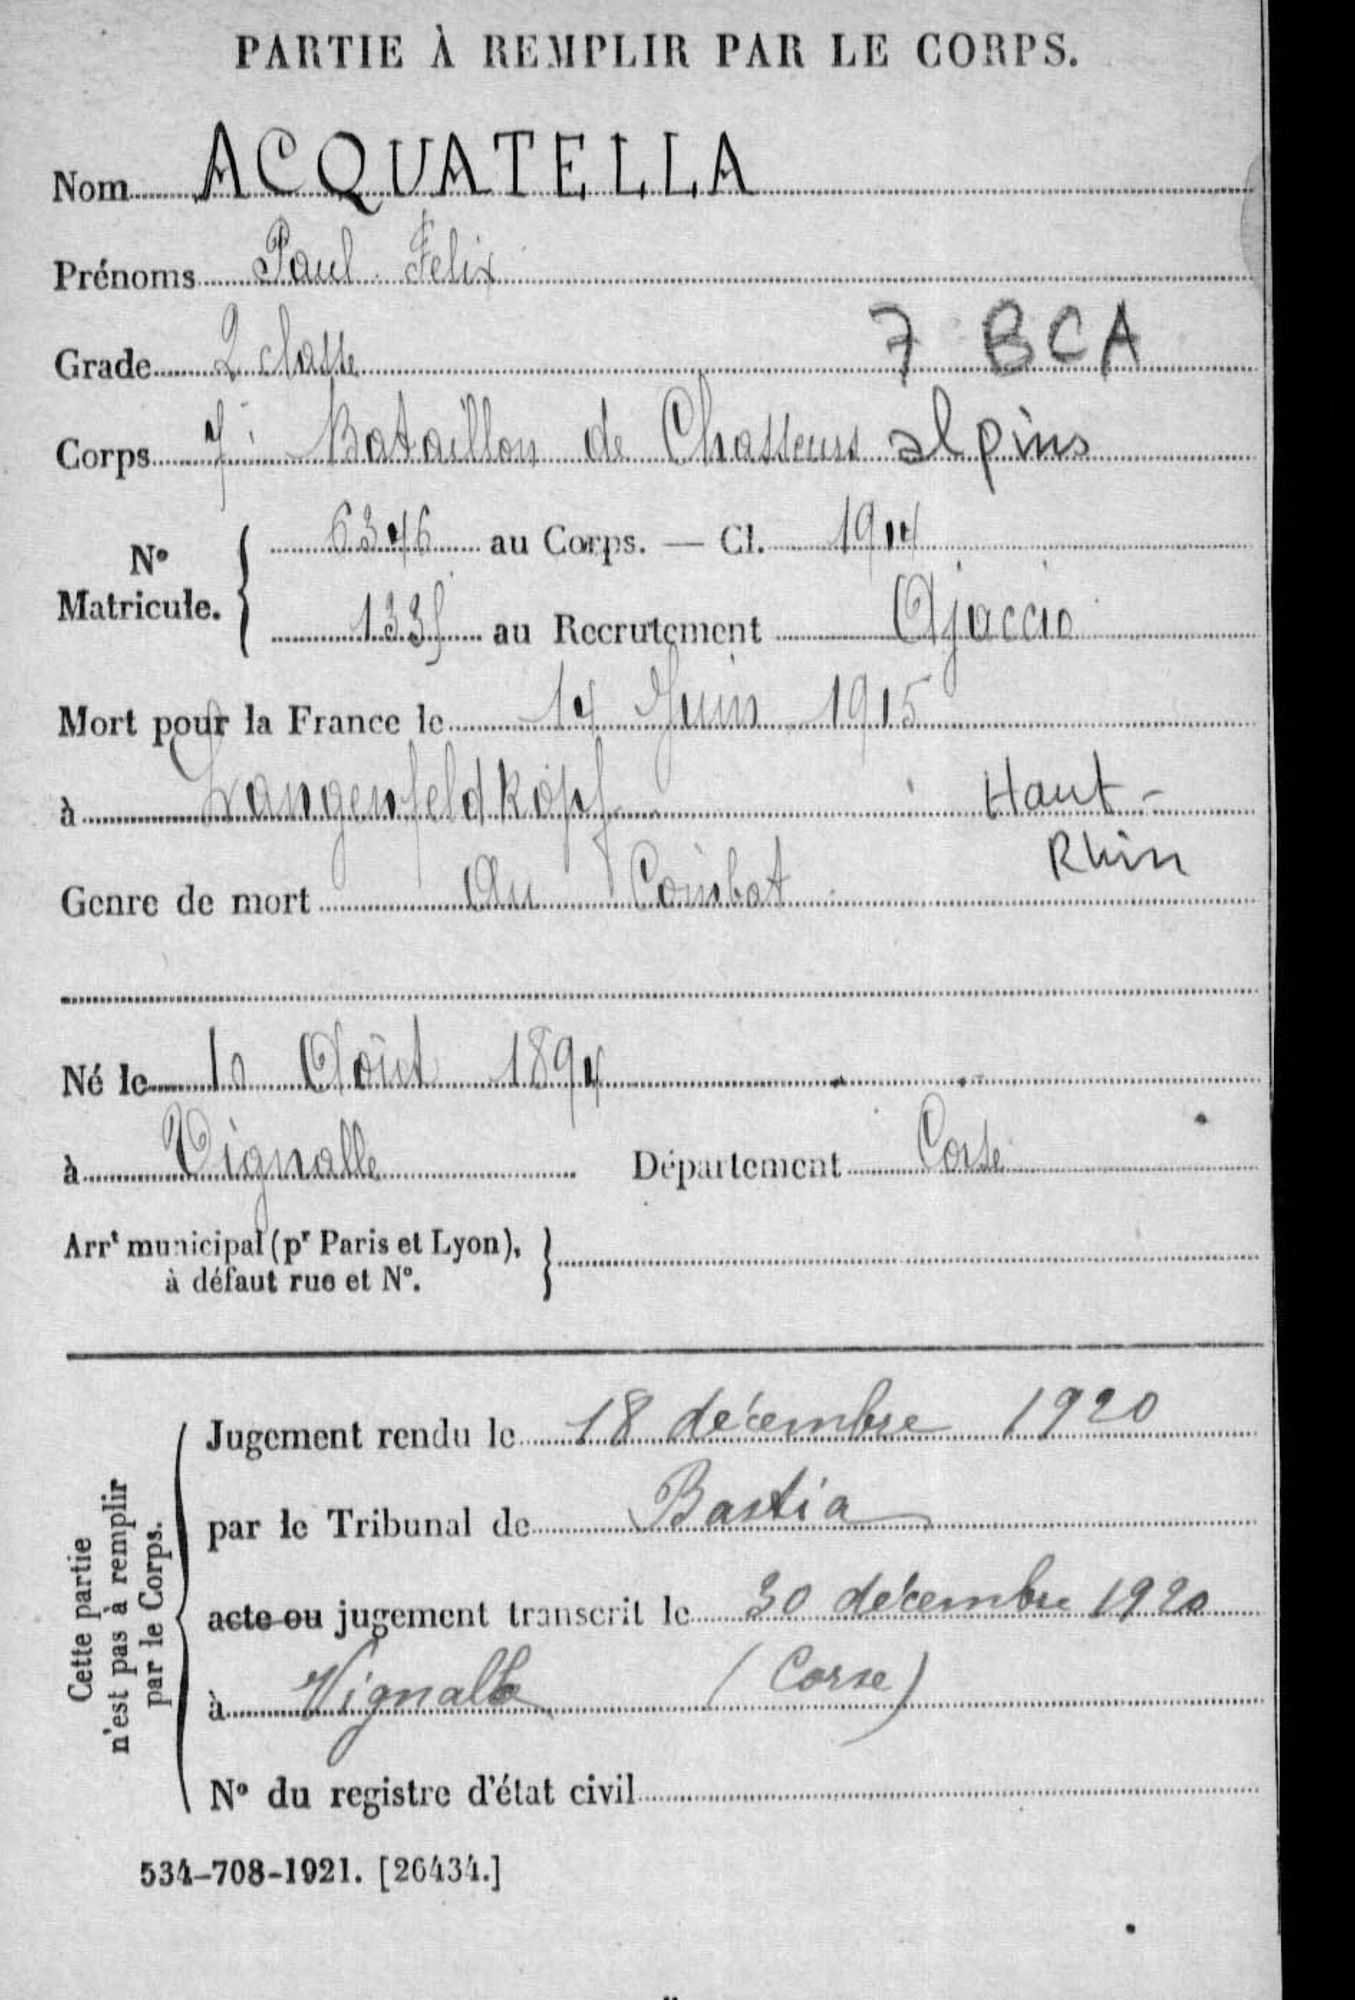 PARTIE À REMPLIR PAR LE CORPS.
Nom ACQUATELLA
Prénoms Paul Felix
Grade 2 classe 7 BCA
Corps 7e Bataillon de Chasseurs alpins
No Matricule. { 6346 au Corps. — Cl. 1914
1335 au Recrutement Ajaccio
Mort pour la France le 14 Juin 1915
à Langenfeldkopf Haut-
Rhin
Genre de mort Au Combat
Né le 10 Août 1894
à Vignalle Département Corse
Arrt municipal (pr Paris et Lyon),
à défaut rue et No. }
Cette partie
n'est pas à remplir
par le Corps.
Jugement rendu le 18 décembre 1920
par le Tribunal de Bastia
acte ou jugement transcrit le 30 décembre 1920
à Vignalle (Corse)
No du registre d'état civil
534-708-1921. [26434.]